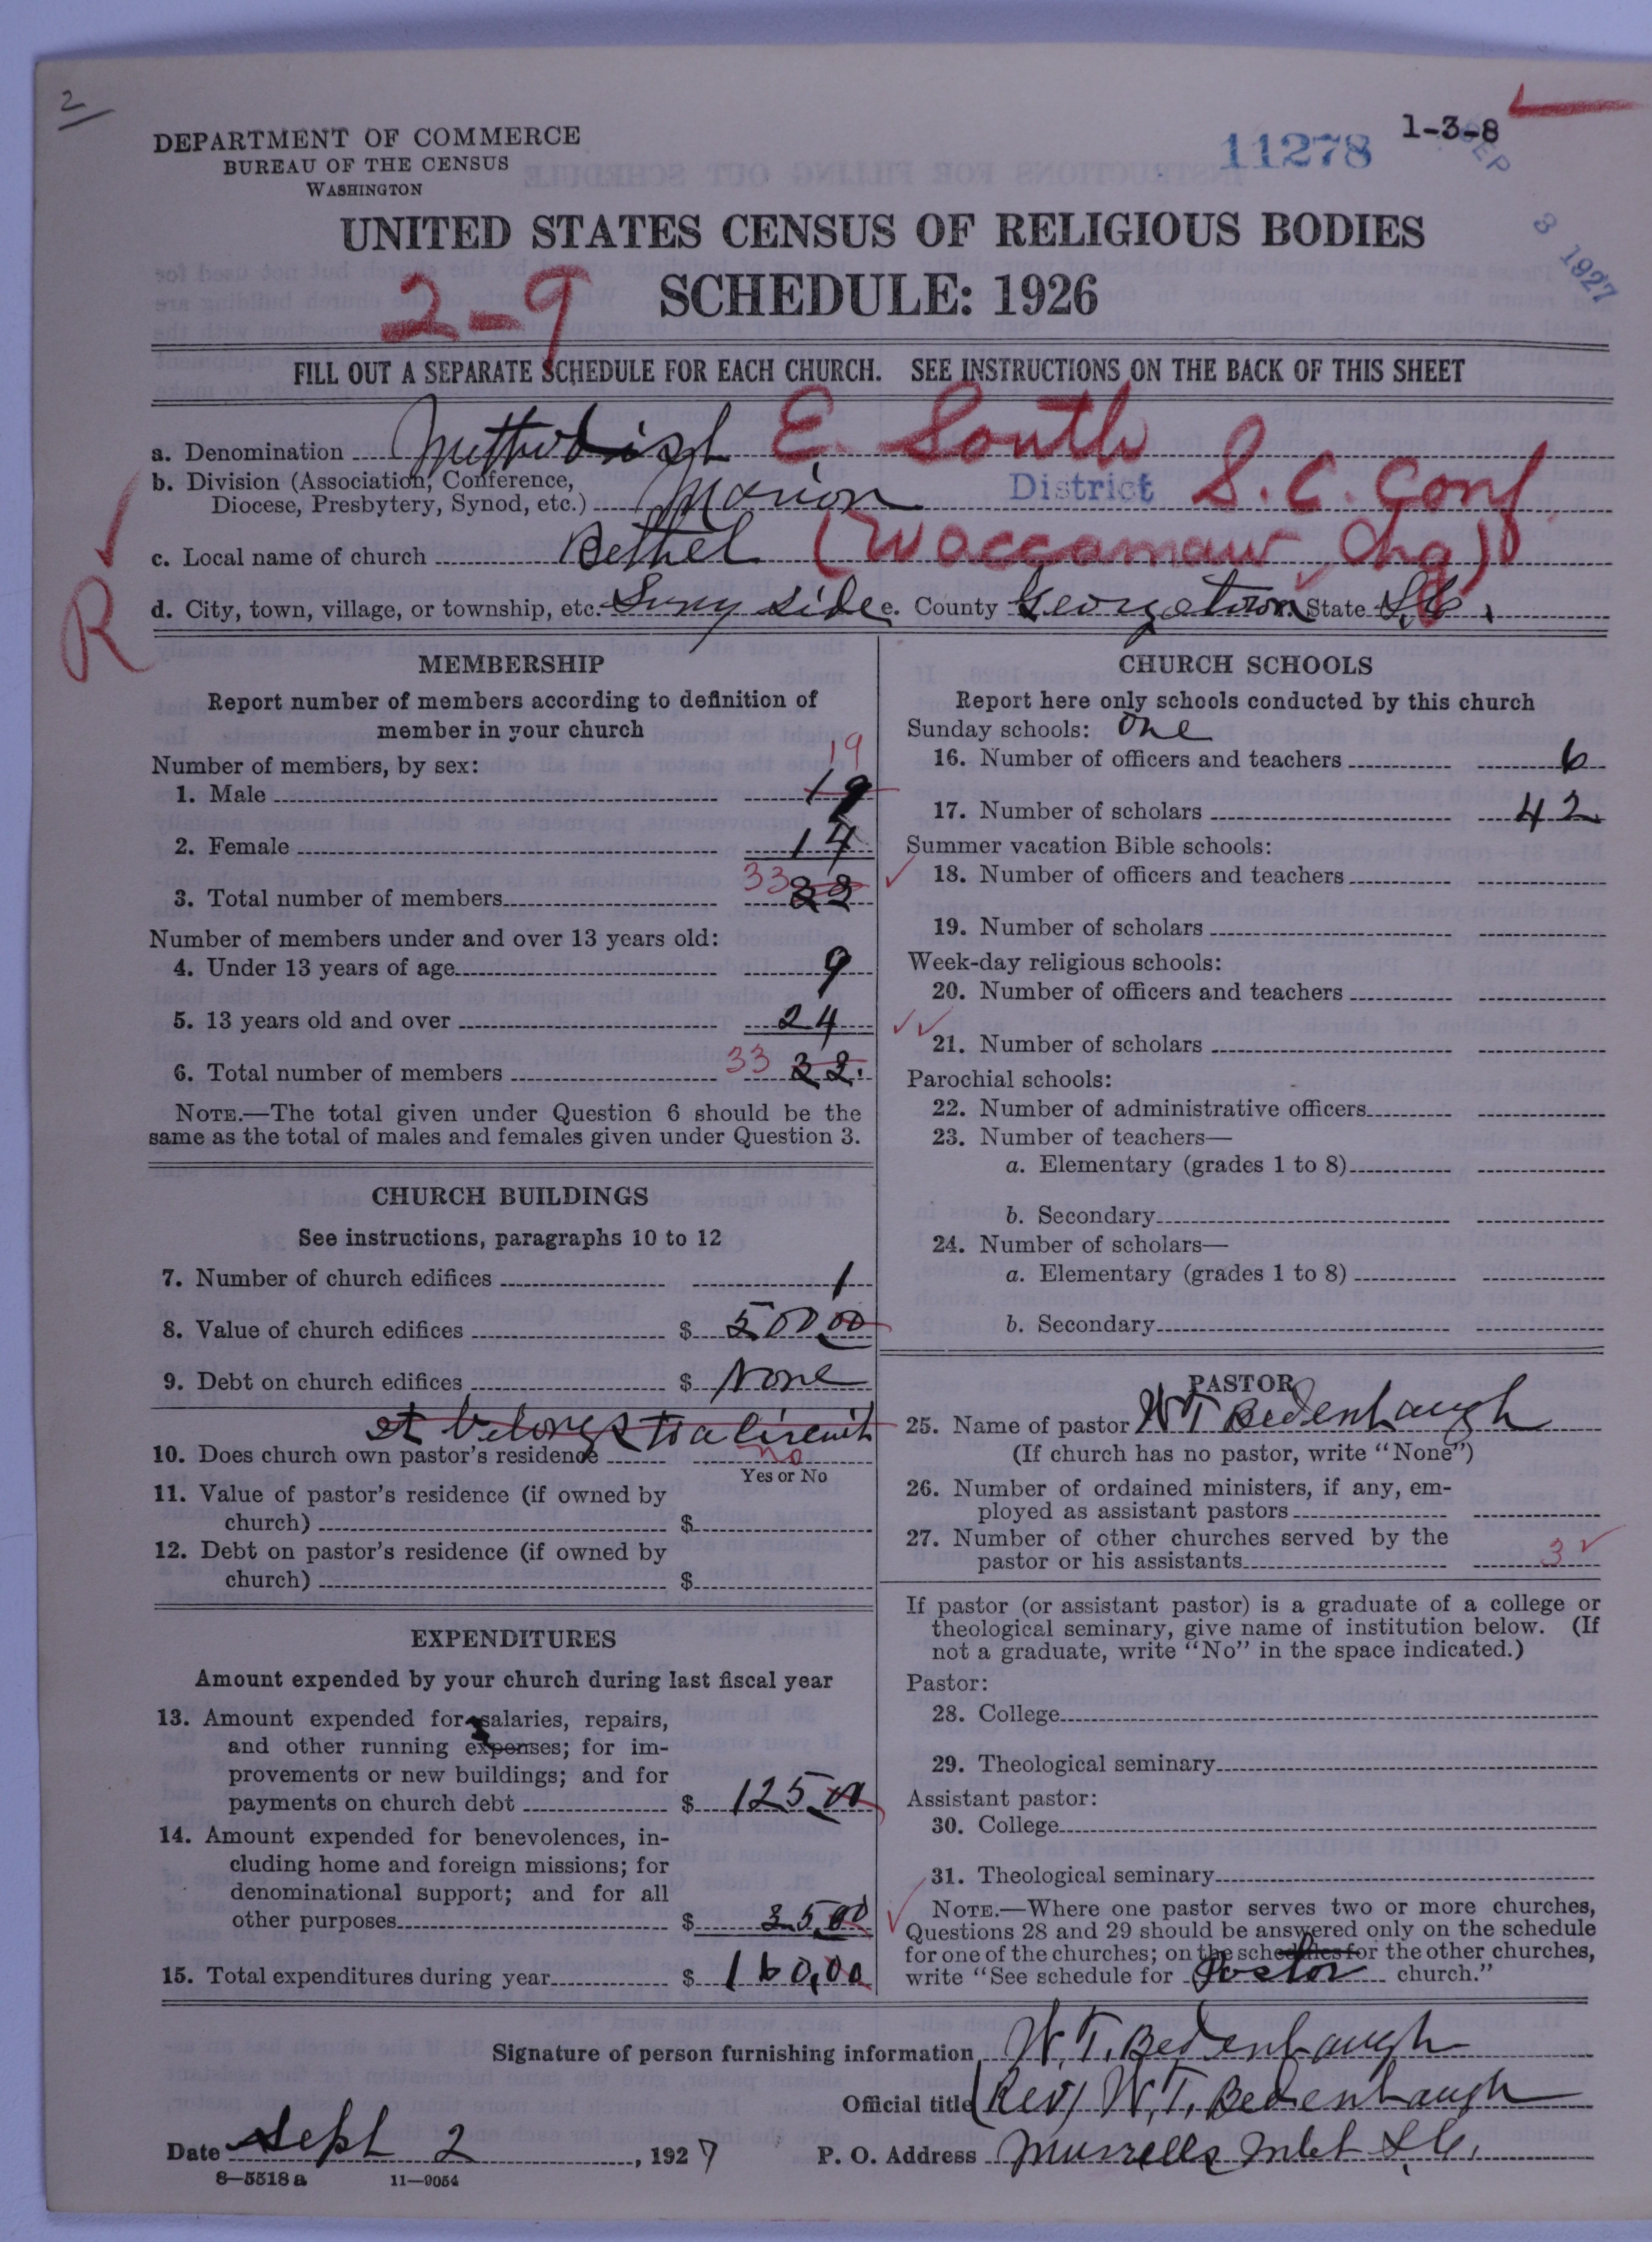 2
DEPARTMENT OF COMMERCE
BUREAU OF THE CENSUS
WASHINGTON
11278
1-3-8
SEP 8 1927
UNITED STATES CENSUS OF RELIGIOUS BODIES
2-9 SCHEDULE: 1926
FILL OUT A SEPARATE SCHEDULE FOR EACH CHURCH. SEE INSTRUCTIONS ON THE BACK OF THIS SHEET
a. Denomination Methodist E. South
b. Division (Association, Conference,
Diocese, Presbytery, Synod, etc.) Marion District S.C. Conf
c. Local name of church Bethel (Waccamaw Chg)
d. City, town, village, or township, etc. Suny Side e. County Georgetown State S.C.
R
MEMBERSHIP
Report number of members according to definition of
member in your church
Number of members, by sex:
19
1. Male 19
2. Female 14
3. Total number of members 33
Number of members under and over 13 years old:
4. Under 13 years of age 9
5. 13 years old and over 24
6. Total number of members 33
NOTE.—The total given under Question 6 should be the
same as the total of males and females given under Question 3.
CHURCH BUILDINGS
See instructions, paragraphs 10 to 12
7. Number of church edifices 1
8. Value of church edifices $ 500 00
9. Debt on church edifices $ None
it belongs to a circuit
10. Does church own pastor's residence no
Yes or No
11. Value of pastor's residence (if owned by
church) $
12. Debt on pastor's residence (if owned by
church) $
EXPENDITURES
Amount expended by your church during last fiscal year
13. Amount expended for salaries, repairs,
and other running expenses; for im-
provements or new buildings; and for
payments on church debt $ 125.00
14. Amount expended for benevolences, in-
cluding home and foreign missions; for
denominational support; and for all
other purposes $ 35.00
15. Total expenditures during year $ 160,00
CHURCH SCHOOLS
Report here only schools conducted by this church
Sunday schools: One
16. Number of officers and teachers 6
17. Number of scholars 42
Summer vacation Bible schools:
18. Number of officers and teachers
19. Number of scholars
Week-day religious schools:
20. Number of officers and teachers
21. Number of scholars
Parochial schools:
22. Number of administrative officers
23. Number of teachers—
a. Elementary (grades 1 to 8)
b. Secondary
24. Number of scholars—
a. Elementary (grades 1 to 8)
b. Secondary
PASTOR
25. Name of pastor W T Bedenbaugh
(If church has no pastor, write "None")
26. Number of ordained ministers, if any, em-
ployed as assistant pastors
27. Number of other churches served by the
pastor or his assistants 3
If pastor (or assistant pastor) is a graduate of a college or
theological seminary, give name of institution below. (If
not a graduate, write "No" in the space indicated.)
Pastor:
28. College
29. Theological seminary
Assistant pastor:
30. College
31. Theological seminary
NOTE.—Where one pastor serves two or more churches,
Questions 28 and 29 should be answered only on the schedule
for one of the churches; on the schedules for the other churches,
write "See schedule for Pastor church."
Signature of person furnishing information W. T. Bedenbaugh
Official title (Rev) W. T. Bedenbaugh
Date Sept 2, 1927 P. O. Address Murrells Inlet S.C.
8—5518 a 11—9054